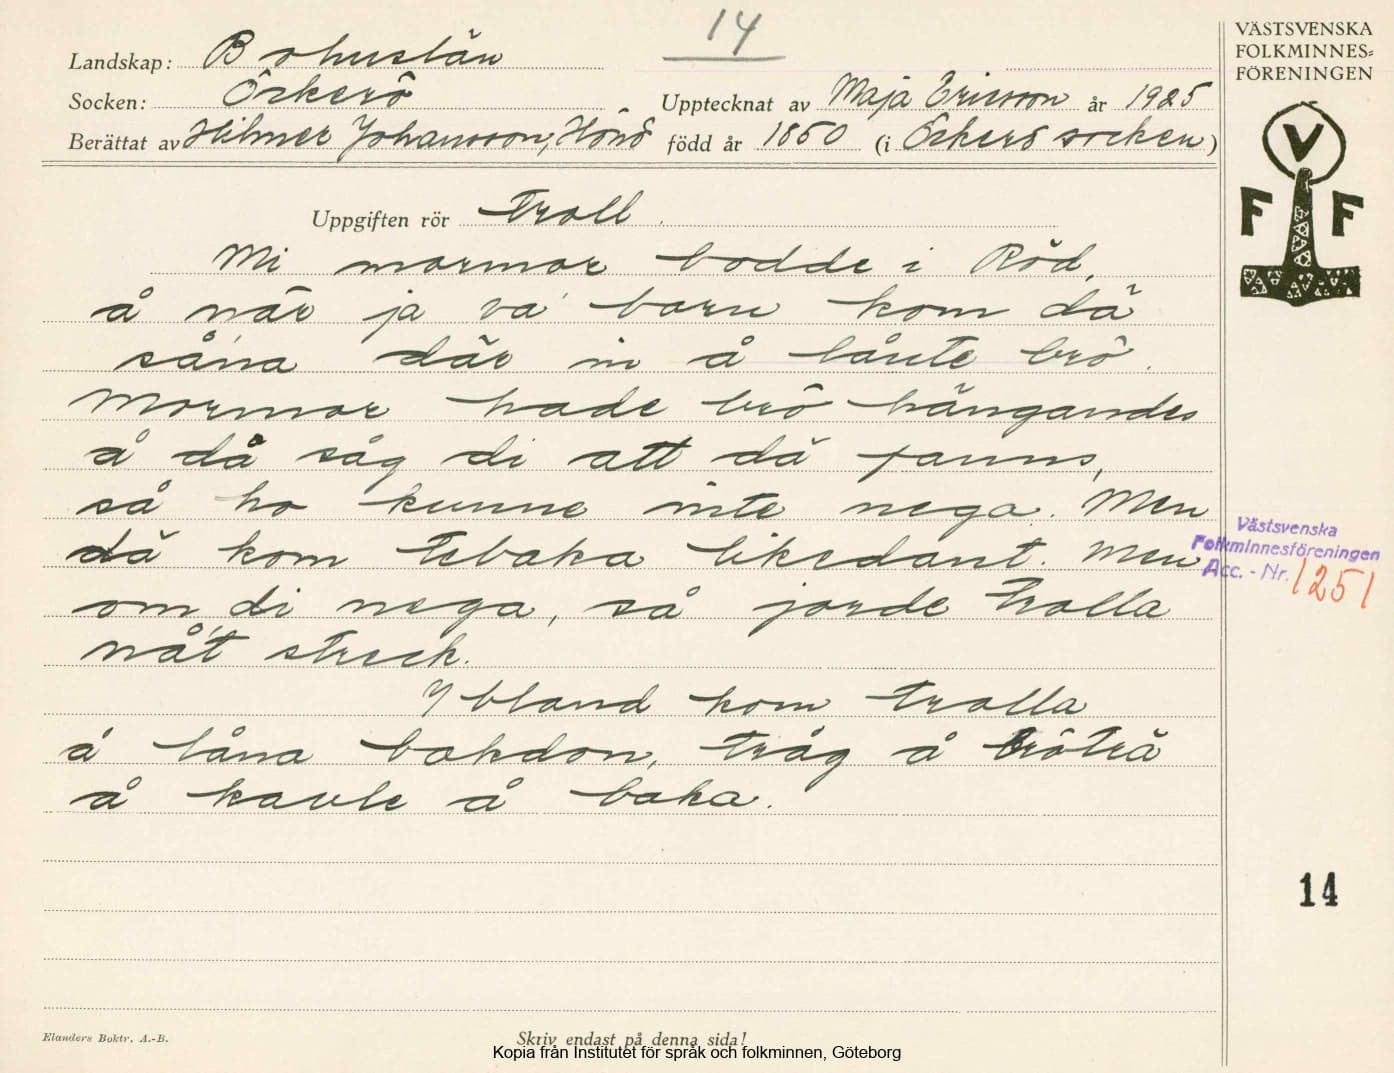 14
Landskap: Bohuslän
Socken: Öckerö
Upptecknat av Maja Ericsson år 1925
Berättat av Hilmer Johansson, Hönö född år 1850 (i Öckerö socken)
Uppgiften rör Troll.
Mi mormor bodde i Röd,
å när ja va barn kom dä
såna där in å lånte brö.
Mormor hade brö hängandes
å då såg di att dä fanns,
så ho kunne inte nega. Men
dä kom tebaka likedant. Men
om di nega, så jorde trolla
nåt streck.
Ibland kom trolla
å låna bakdon, tråg å bröträ
å kavle å baka.
VÄSTSVENSKA
FOLKMINNES=
FÖRENINGEN
V
F F
Västsvenska
Folkminnesföreningen
Acc. - Nr. 1251
14
Elanders Boktr. A.-B.
Skriv endast på denna sida!
Kopia från Institutet för språk och folkminnen, Göteborg